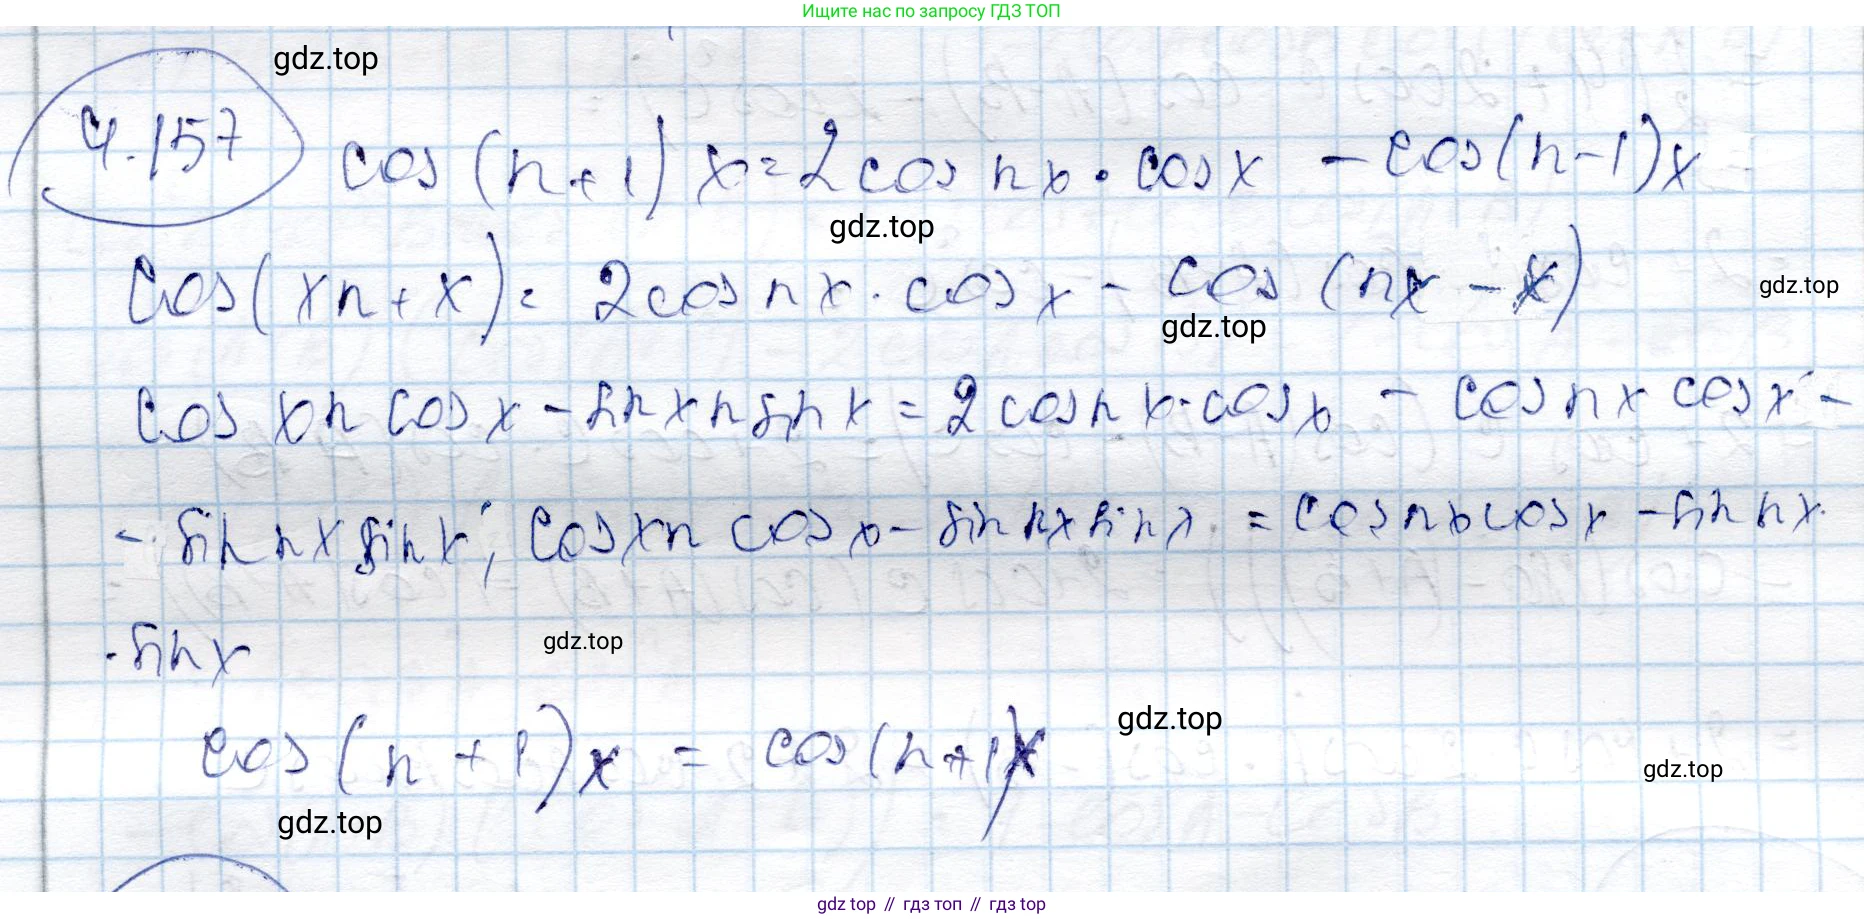 Ищите нас по запросу ГДЗ ТОП
gdz.top
4.157 cos(n+1)x=2cos nx·cosx -cos(n-1)x
gdz.top
cos(xn+x)=2cos nx·cosx-cos(nx-x)
gdz.top
gdz.top
cos xn cosx-sinxnsinx=2cosnx·cosx-cosnx cosx-
-sin nx sinx; cosxn cosx-sin nx sinx=cosnx cosx-sin nx·
·sinx
gdz.top
gdz.top
cos(n+1)x=cos(n+1)x
gdz.top
gdz.top
gdz top // гдз топ // гдз top